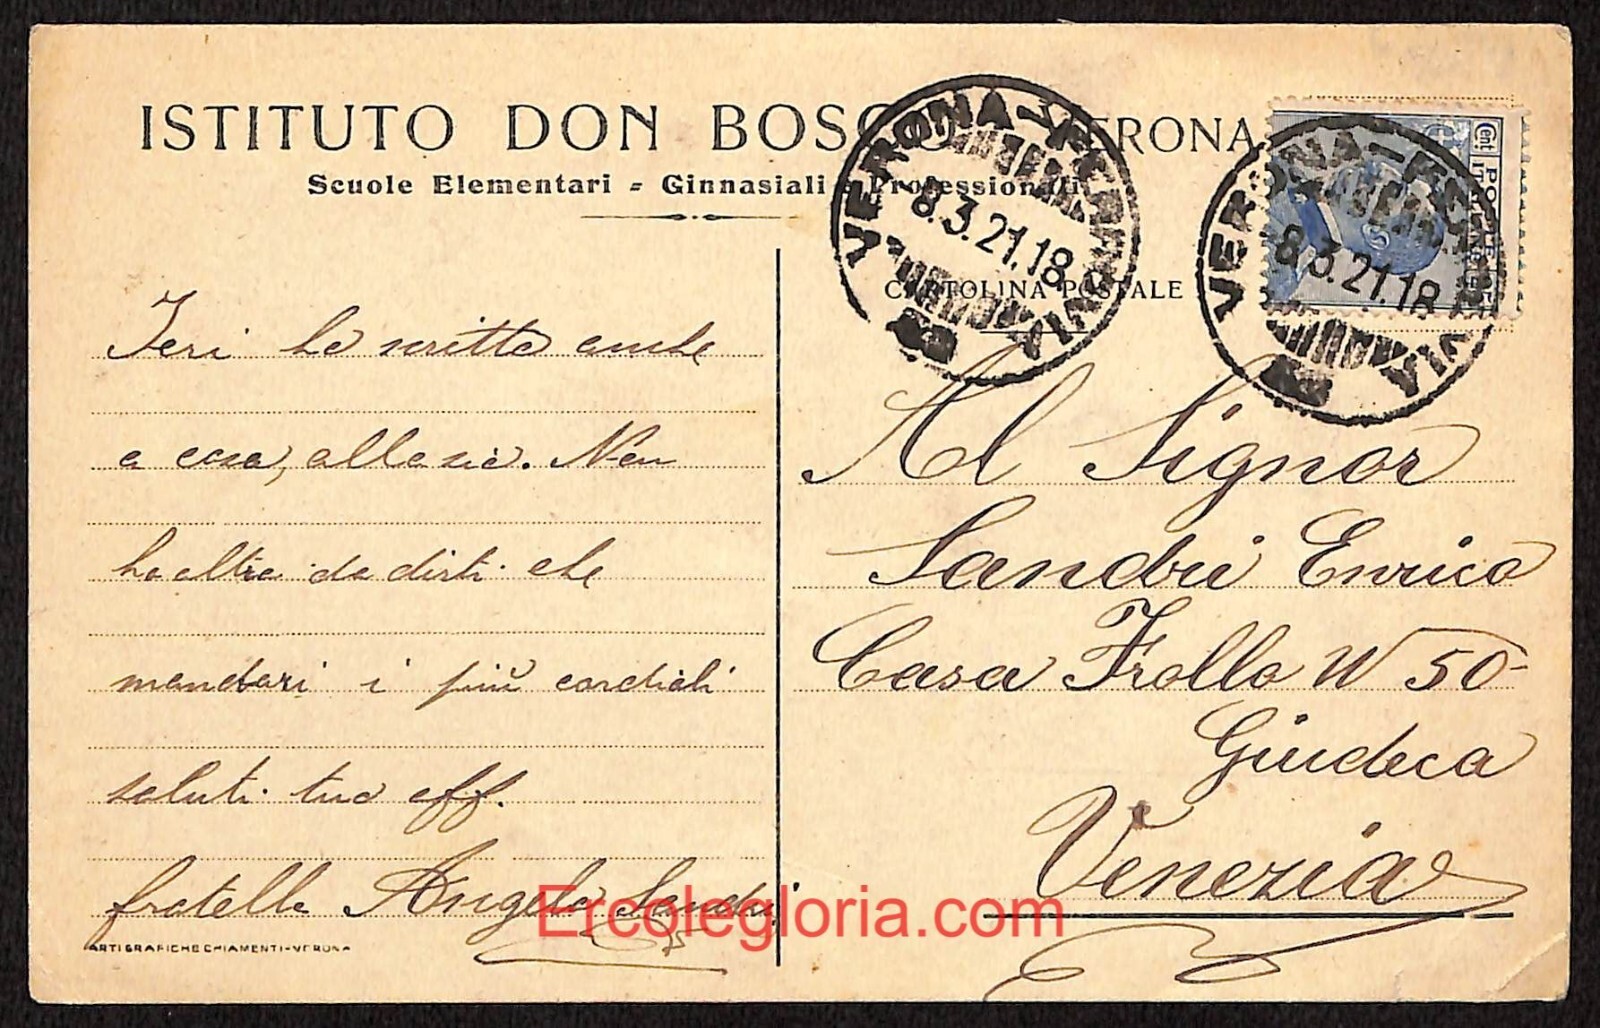 ISTITUTO DON BOSCO - VERONA
Scuole Elementari - Ginnasiali e Professionali
CARTOLINA POSTALE
VERONA-FERROVIA
8.3.21.18
VERONA-FERROVIA
8.3.21.18
Cent 25
POSTE
ITALIANE
Ieri ho scritto anche
a casa, alla zia. Non
ho altro da dirti che
mandari i più cordiali
saluti tuo aff.
fratello Angelo Sandri
ARTI GRAFICHE CHIAMENTI-VERONA
Al Signor
Sandri Enrico
Casa Frollo N 50
Giudeca
Venezia
Ercolegloria.com